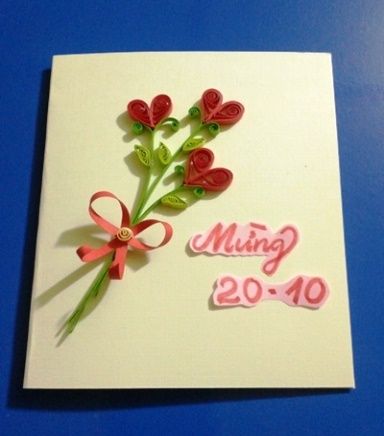 Mừng
20-10